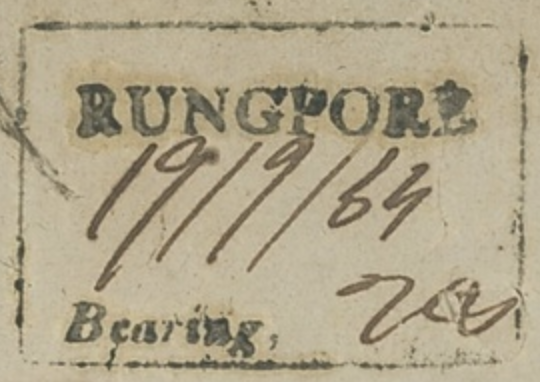 RUNGPORE
19/9/64
Bearing,